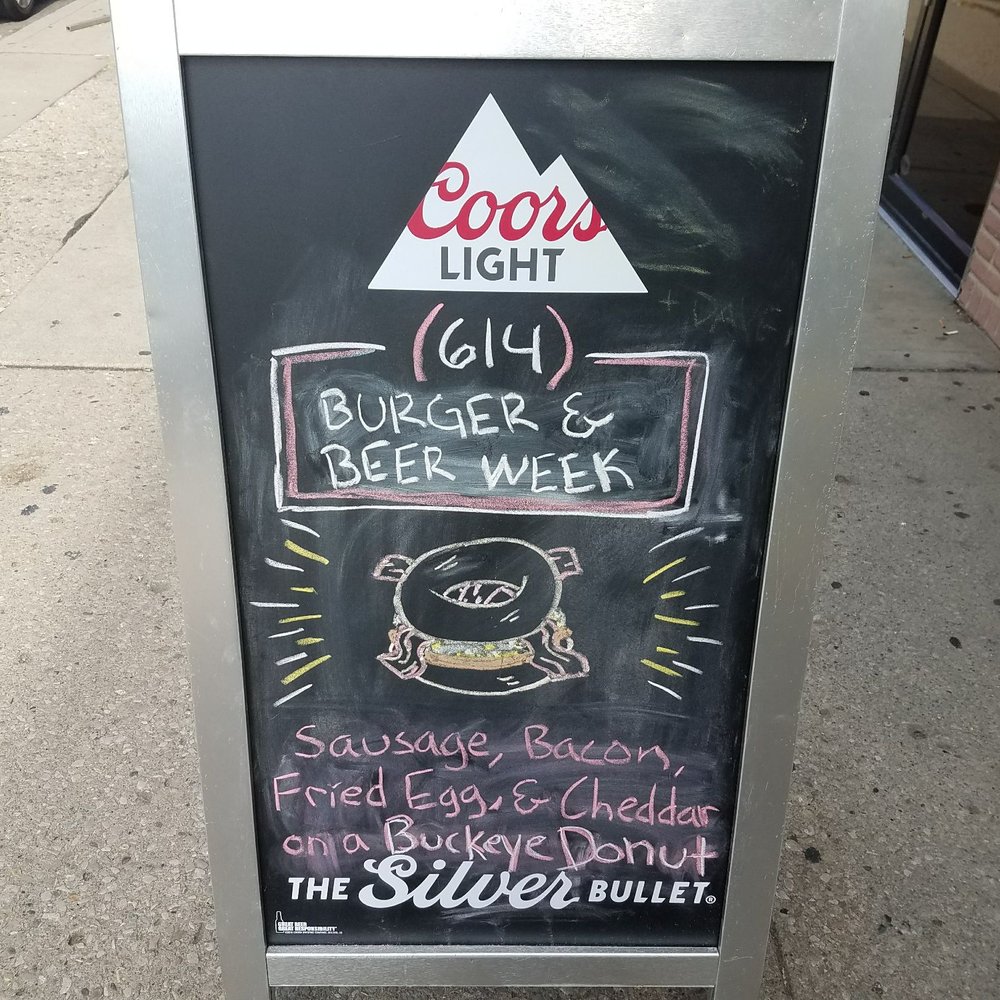 Coors
LIGHT
(614)
BURGER &
BEER WEEK
Sausage, Bacon,
Fried Egg, & Cheddar
on a Buckeye Donut
THE Silver BULLET®
GREAT BEER
GREAT RESPONSIBILITY